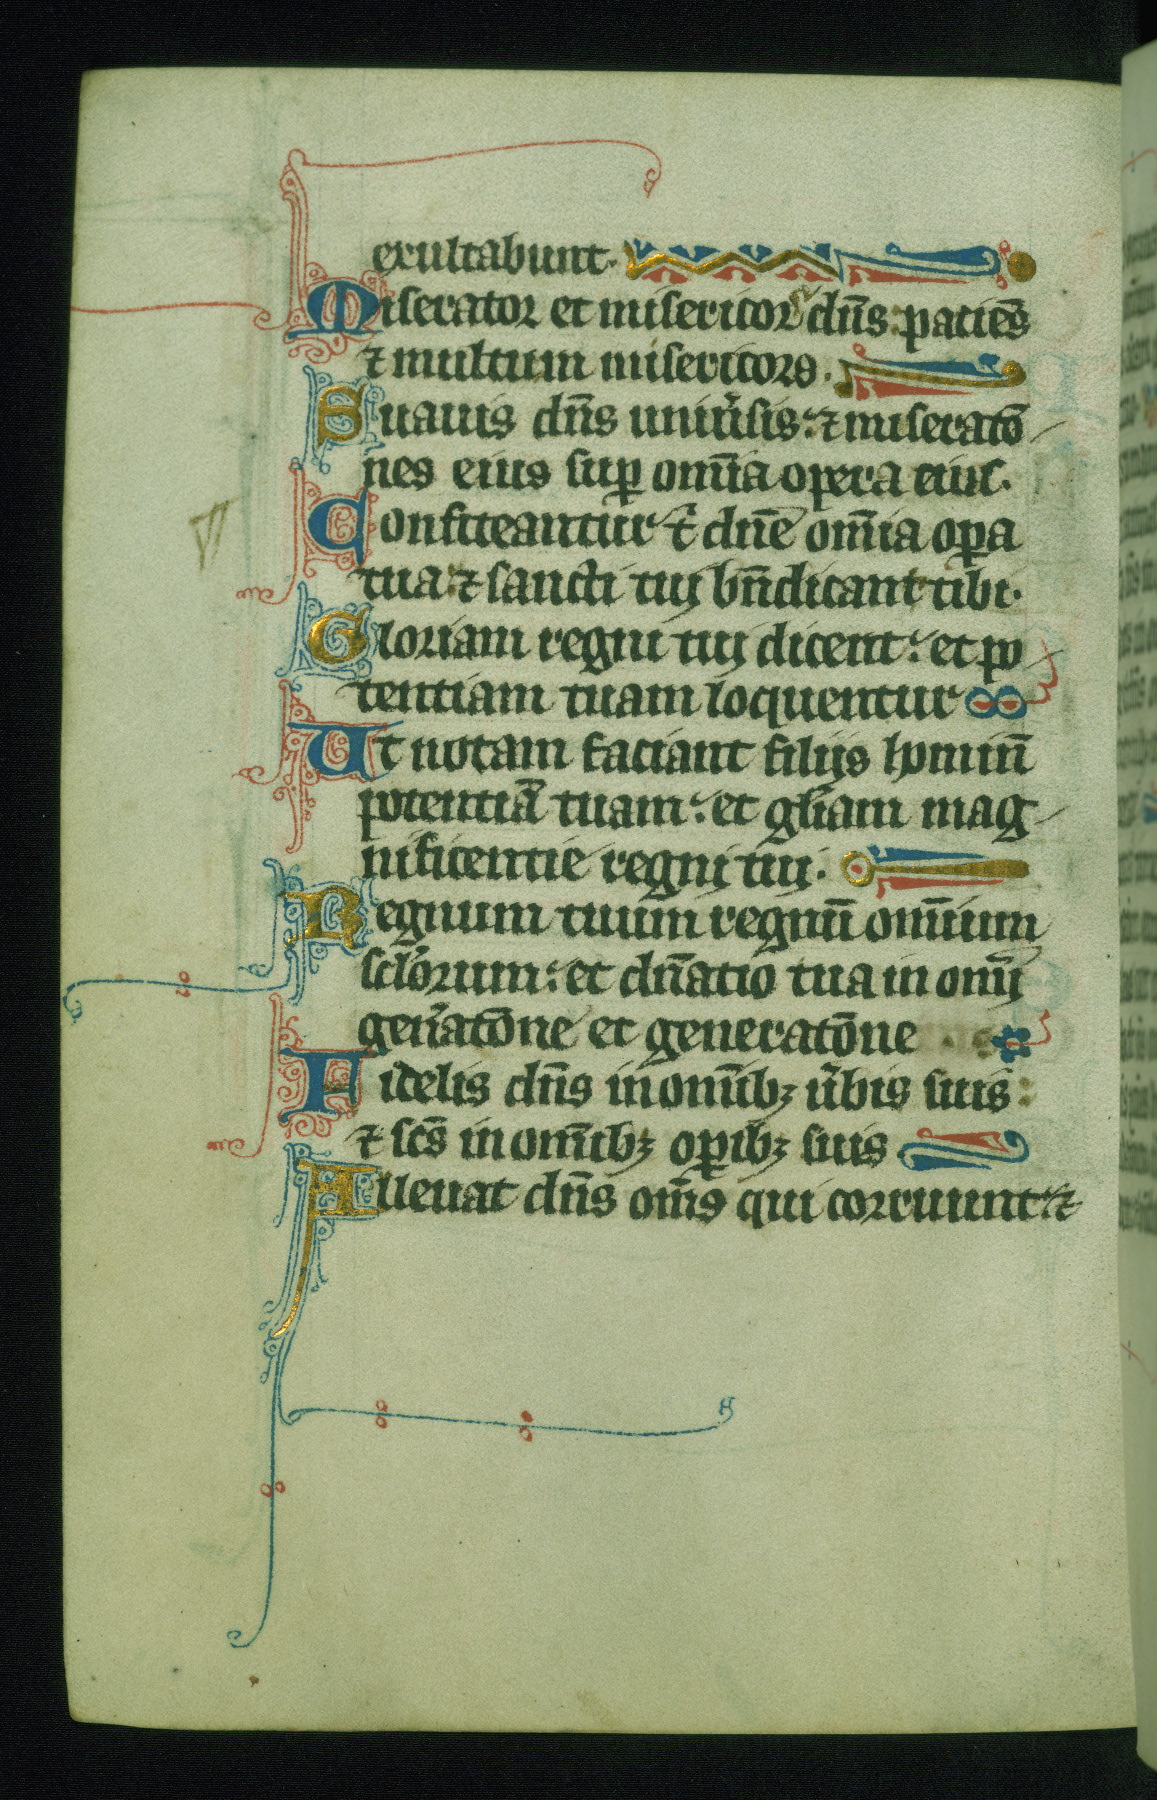 exultabunt.
Miserator et misericors dn̄s: patiēs
⁊ multum misericors.
Suauis dn̄s uniu̾sis: ⁊ miseratō
nes eius sup̱ om̄ia opera eius.
Confiteantur t̾ dn̄e om̄ia op̱a
tua: ⁊ sancti tuj bn̄dicant tibi.
Gloriam regni tuj dicent: et po
tentiam tuam loquentur
Ut notam faciant filijs hominū
potentiā tuam: et gl̄iam mag
nificentie regnj tuj.
Regnum tuum regnū om̄ium
sclo̾rum: et dn̄atio tua in om̄j
gen̾atōne et generatōne
Fidelis dn̄s in om̄ibꝫ u̾bis suis:
⁊ scs̄ in om̄ibꝫ op̱ibꝫ suis
Alleuat dn̄s om̄s qui corruunt: ⁊